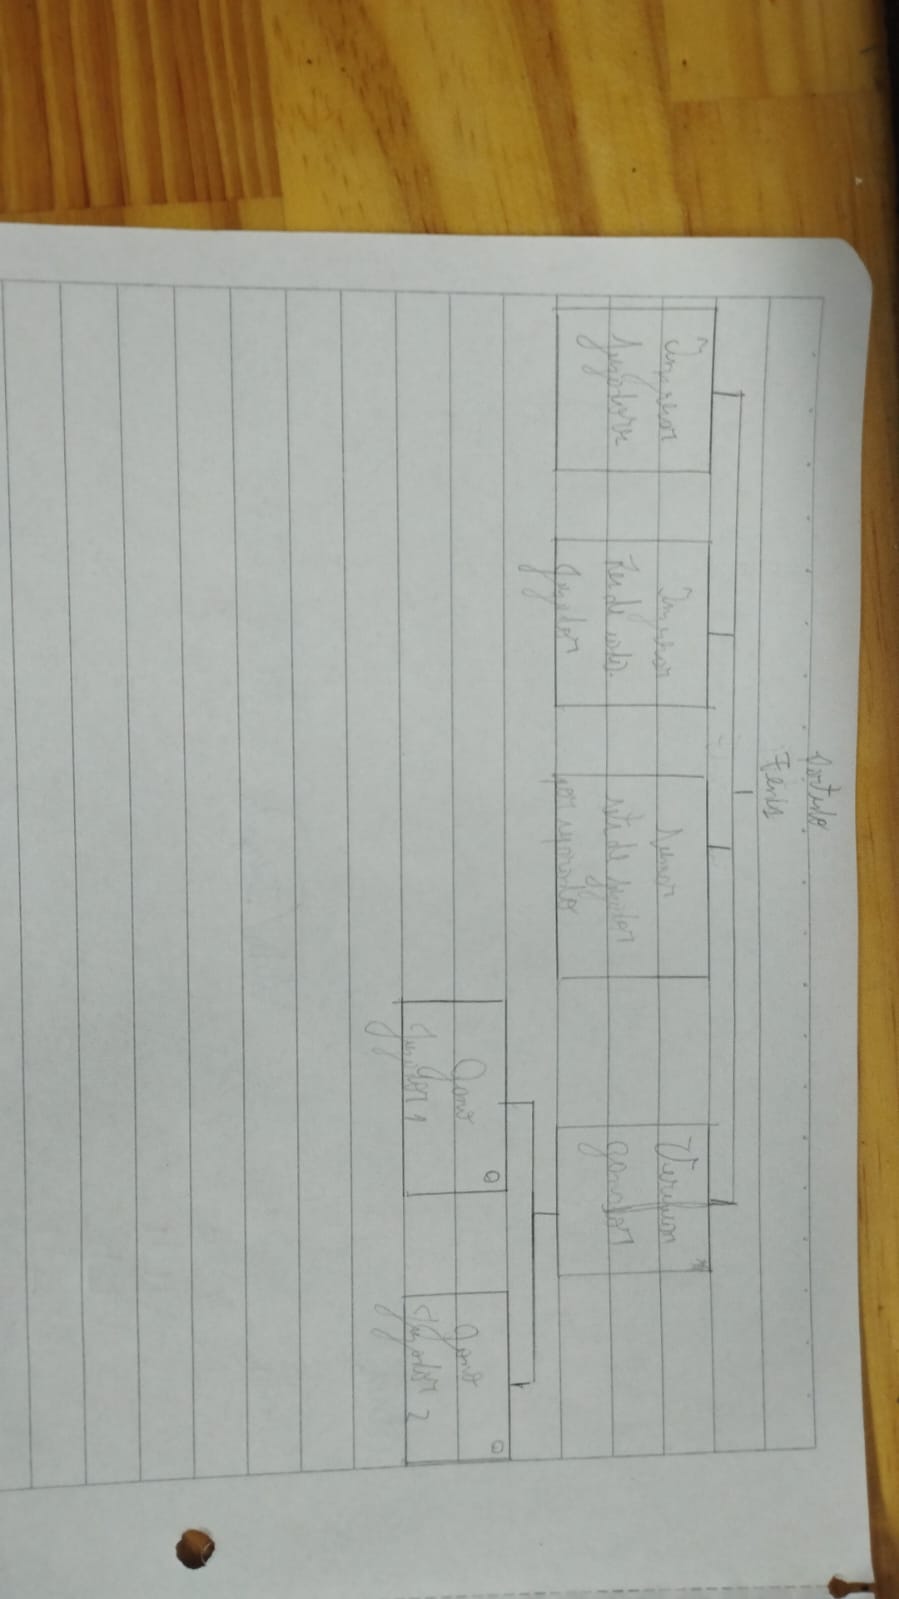 Partido
Tenis
Ingresar
Jugadores
Ingresar
jugador
Sumar
sets de jugador
por separado
Verificar
ganador
Gano
Jugador 1
Gano
Jugador 2